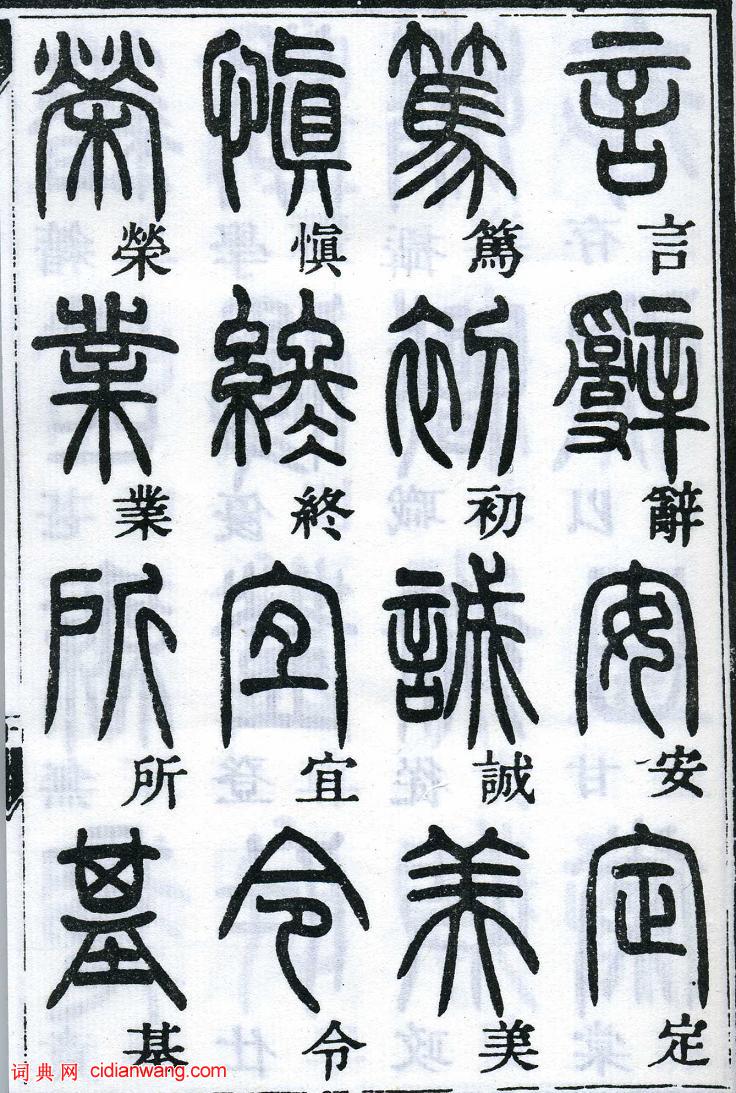 言辭安定
篤初誠美
慎終宜令
榮業所基
词典网 cidianwang.com